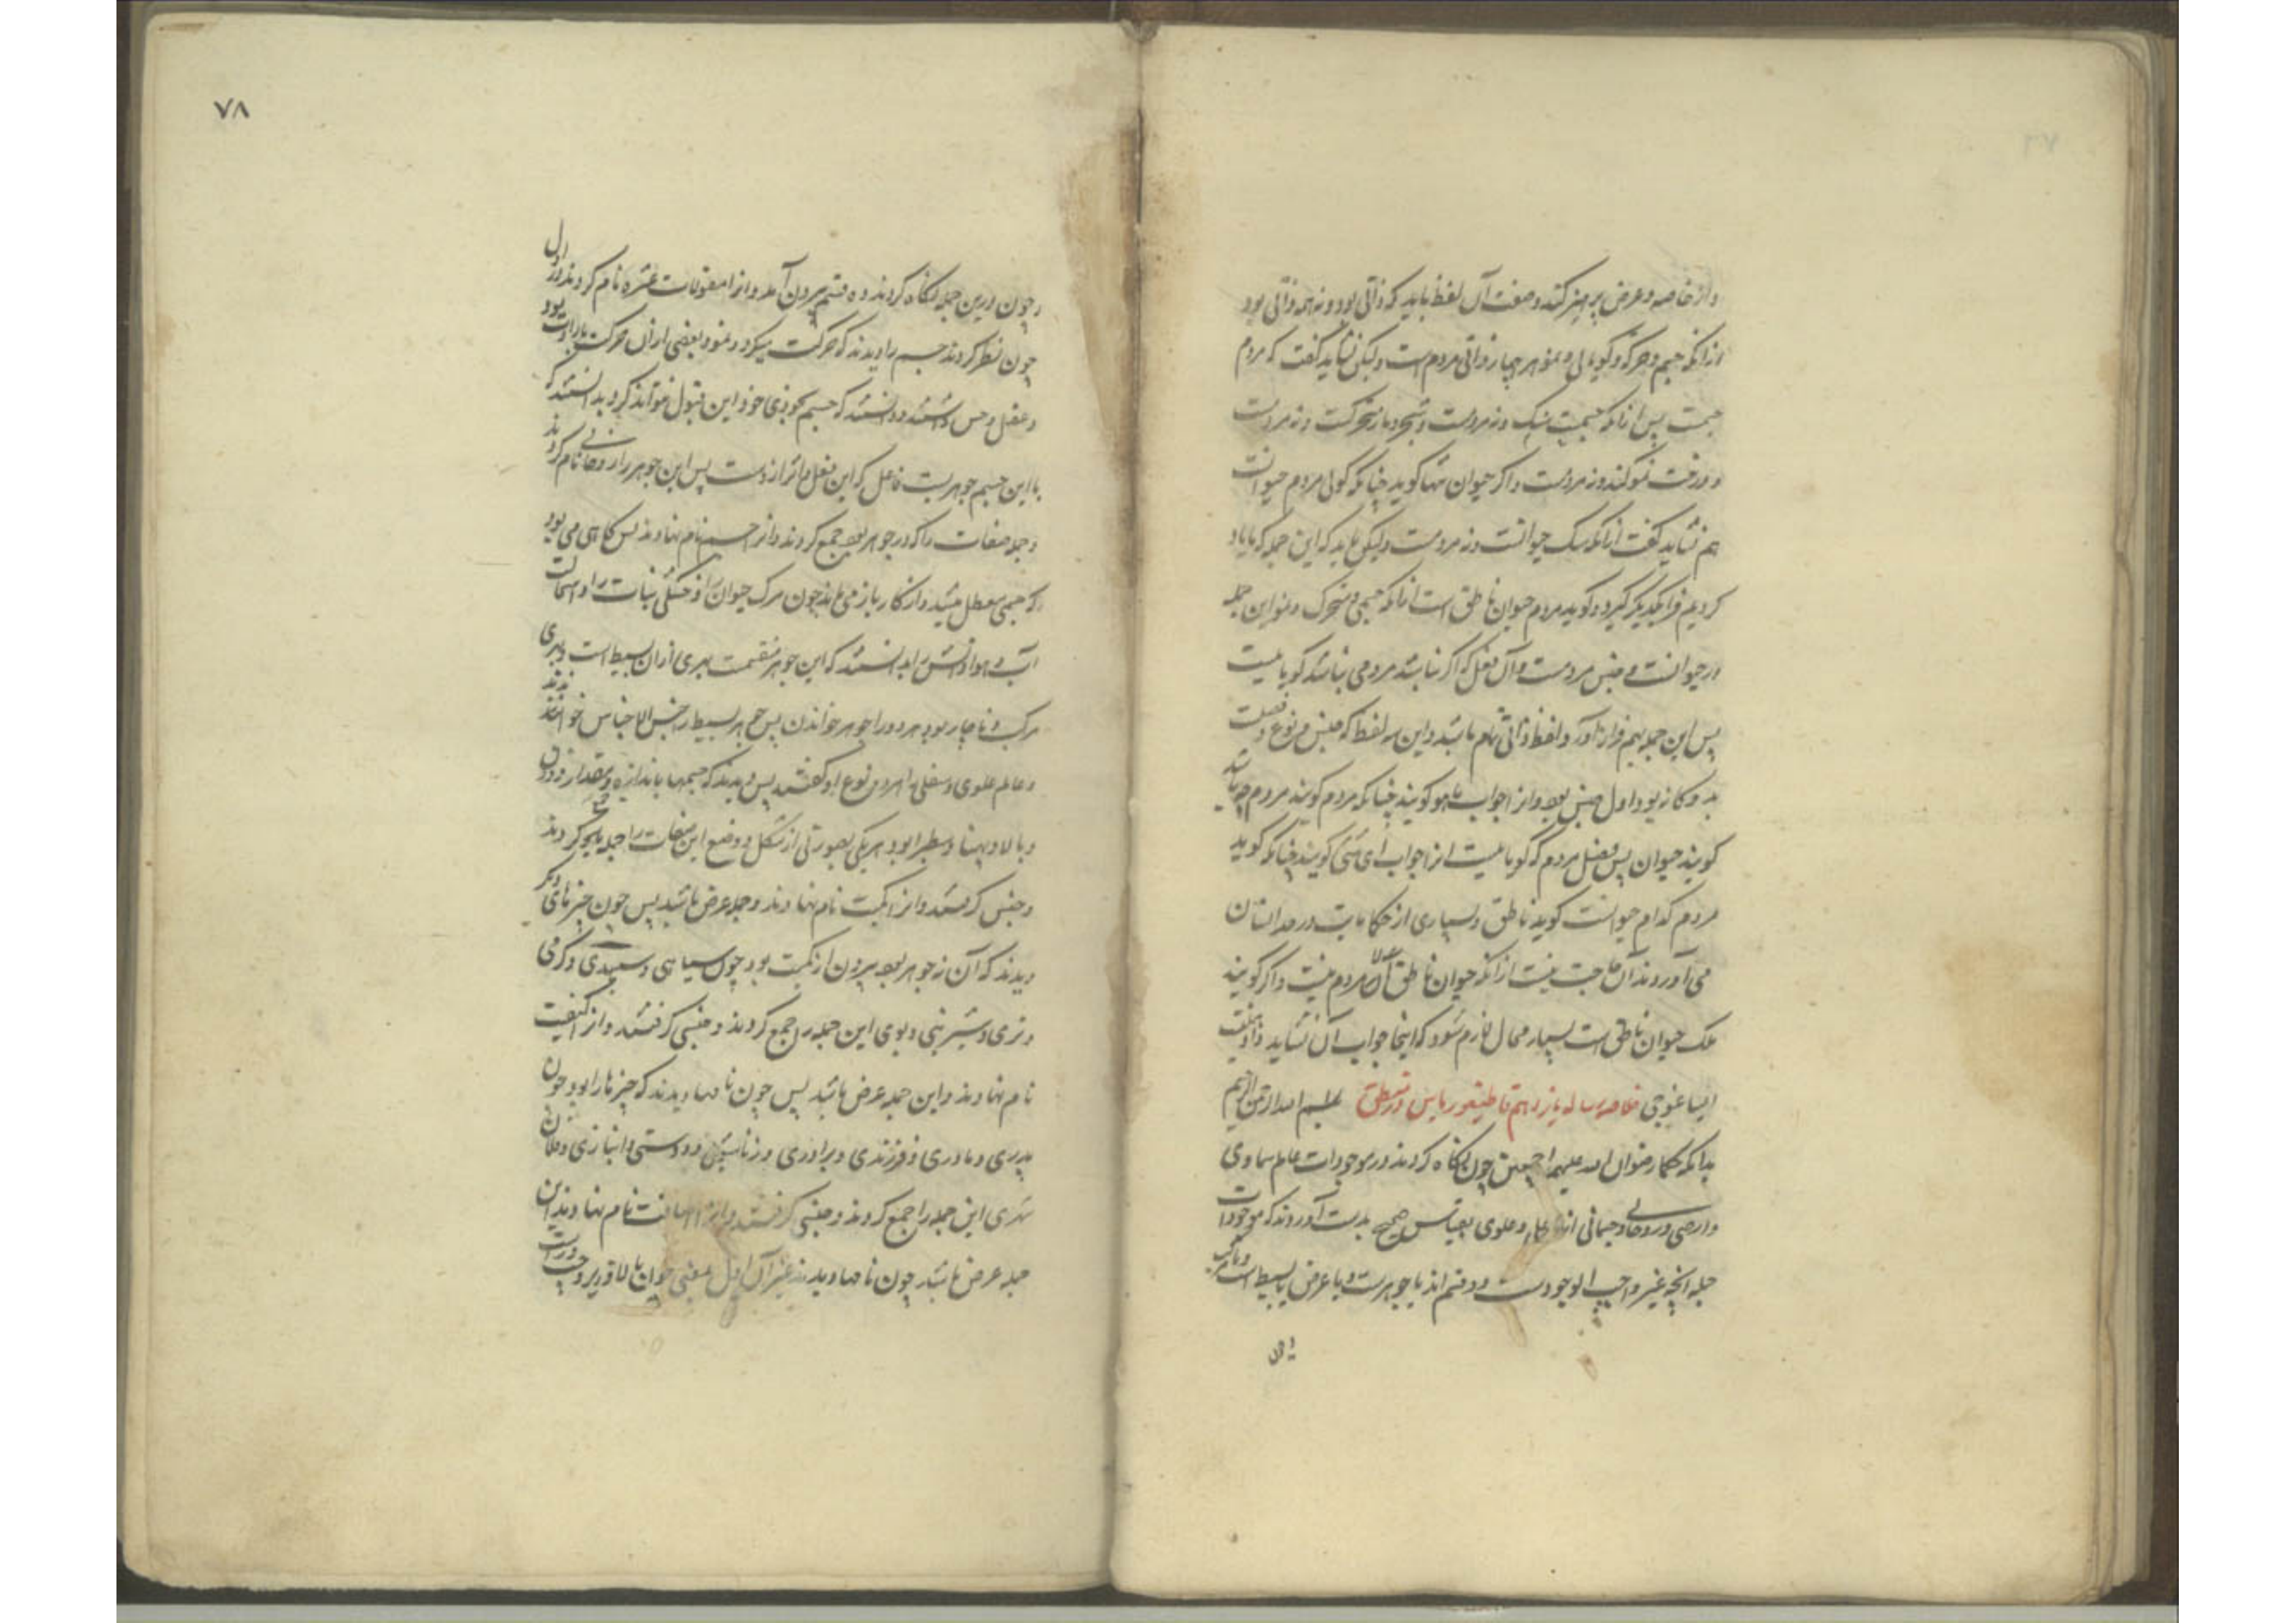 و از خاصه و عرض پرهیز کند و صفت آن لفظ باید که ذاتی بود و نه همه ذاتی بود
از آنکه جسم و حرکه و کویایی و نمو هر چهار ذاتی مردم است ولیکن نشاید کفت که مردم
جسمست پس از آنکه جسمیت سنک و نه مردمست و شجر و باز متحرکست و نه مردمست
و درخت نمو کند و نه مردمست و اکر حیوان تنها کوید چنانکه کوئی مردم حیوانست
هم نشاید کفت از آنکه سک حیوانست و نه مردمست ولیکن باید که این جمله که ما یاد
کردیم فرا یکدیکر کیرد و کوید مردم حیوان ناطق است از آنکه جسمی و متحرک و نمو این جمله
در حیوانست و جنس مردمست و آن فصل که اکر نباشد مردمی نباشد کویائیست
پس این جمله بهم فراز آورد و لفظ ذاتی تام باشد و این سه لفظ که جنس و نوع و فصلست
بدو کانه بود اول جنس بود و از جواب ماهو کویند چنانکه مردم کویند مردم چه باشد
کویند حیوان پس فصل مردم که کویائیست از جواب ای شئ کویند چنانکه کوید
مردم کدام حیوانست کوید ناطق و بسیاری از حکایات در حد انسان
می آورده اند آن حاجت نیست از آنکه حیوان ناطق الا مردم نیست و اکر کویند
ملک حیوان ناطق است بسیار محال لازم شود که اینجا جواب آن نشاید دادن
ایساغوجی خلاصه رساله یازدهم قاطیغوریاس در منطق بسم الله الرحمن الرحیم
بدانکه حکما رضوان الله علیهم اجمعین چون نکاه کردند در موجودات عالم سماوی
و ارضی و روحانی و جسمانی از سافل و علوی بقیاس صحیح بدست آوردند که موجودات
جمله آنچه غیر واجب الوجودست دو قسم اند یا جوهرست و یا عرض یا بسیط است و یا مرکب
۷۸
و چون درین جمله نکاه کردند ده قسم بیرون آمد و آنرا مقولات عشره نام کردند و در اول
چون نظر کردند جسم را دیدند که حرکت میکرد و نمو و بعضی از آن حرکت بارادت بود
و عقل و حس داشتند و دانستند که جسم بخودی خود این قبول نتواند کرد بدانستند که
با این جسم جوهریست فاعل که این فعل و اثر ازوست پس این جوهر را روحانی نام کردند
و جمله صفات را که در جوهر بود جمع کردند و آنرا جسم نام نهادند پس کاهی می بود
که جسمی معطل میشد و از کار باز می ماند چون مرک حیوان را و خشکی نبات را و استحالت
آب و هوا و آتش را بدانستند که این جوهر منقسمست بهری از آن بسیط است و بهری
مرکب و ناچار بود هر دو را جوهر خواندن پس جوهر بسیط را جنس الاجناس خواندند
و عالم علوی و سفلی را هر دو نوع او کفتند پس دیدند که جسمها باندازه و مقدار و وزن
و بالا و پهنا و سطبرا بود هر یکی بصورتی از شکل و وضع این صفات را جمله یکجا جمع کردند
و جنس کرفتند و آنرا کمیت نام نهادند و جمله عرض باشد پس چون چیزهای دیکر
دیدند که آن نه جوهر بود بیرون از کمیت بود چون سیاهی و سپیدی و کرمی
و تری و شیرینی و بوی این جمله را جمع کردند و جنسی کرفتند و آنرا کیفیت
نام نهادند و این جمله عرض باشد پس چون نامها دیدند که چیزها را بود چون
پدری و مادری و فرزندی و برادری و زناشوئی و دوستی و انبازی و فلان
شهری این جمله را جمع کردند و جنسی کرفتند و آنرا اضافت نام نهادند این
جمله عرض باشد چون نامها دیدند غیر آن اول معنی چون بالا و زیر و چپ و راست